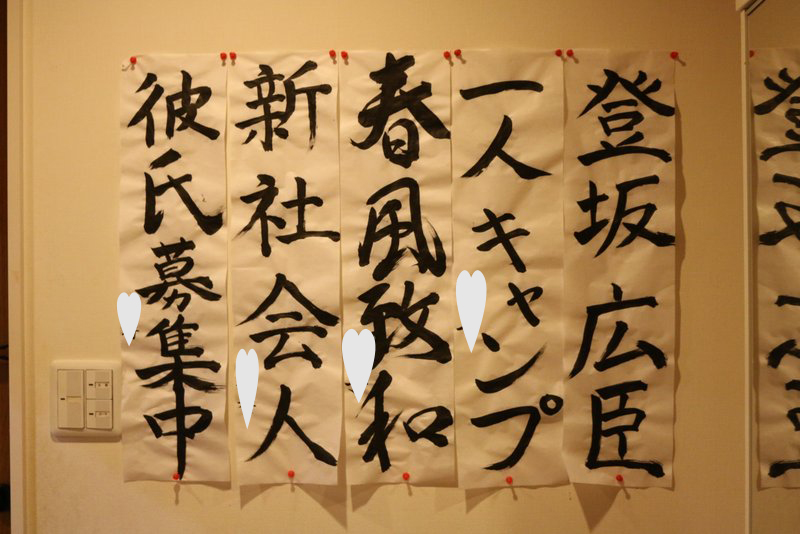 登坂広臣
一人キャンプ
春風致和
新社会人
彼氏募集中